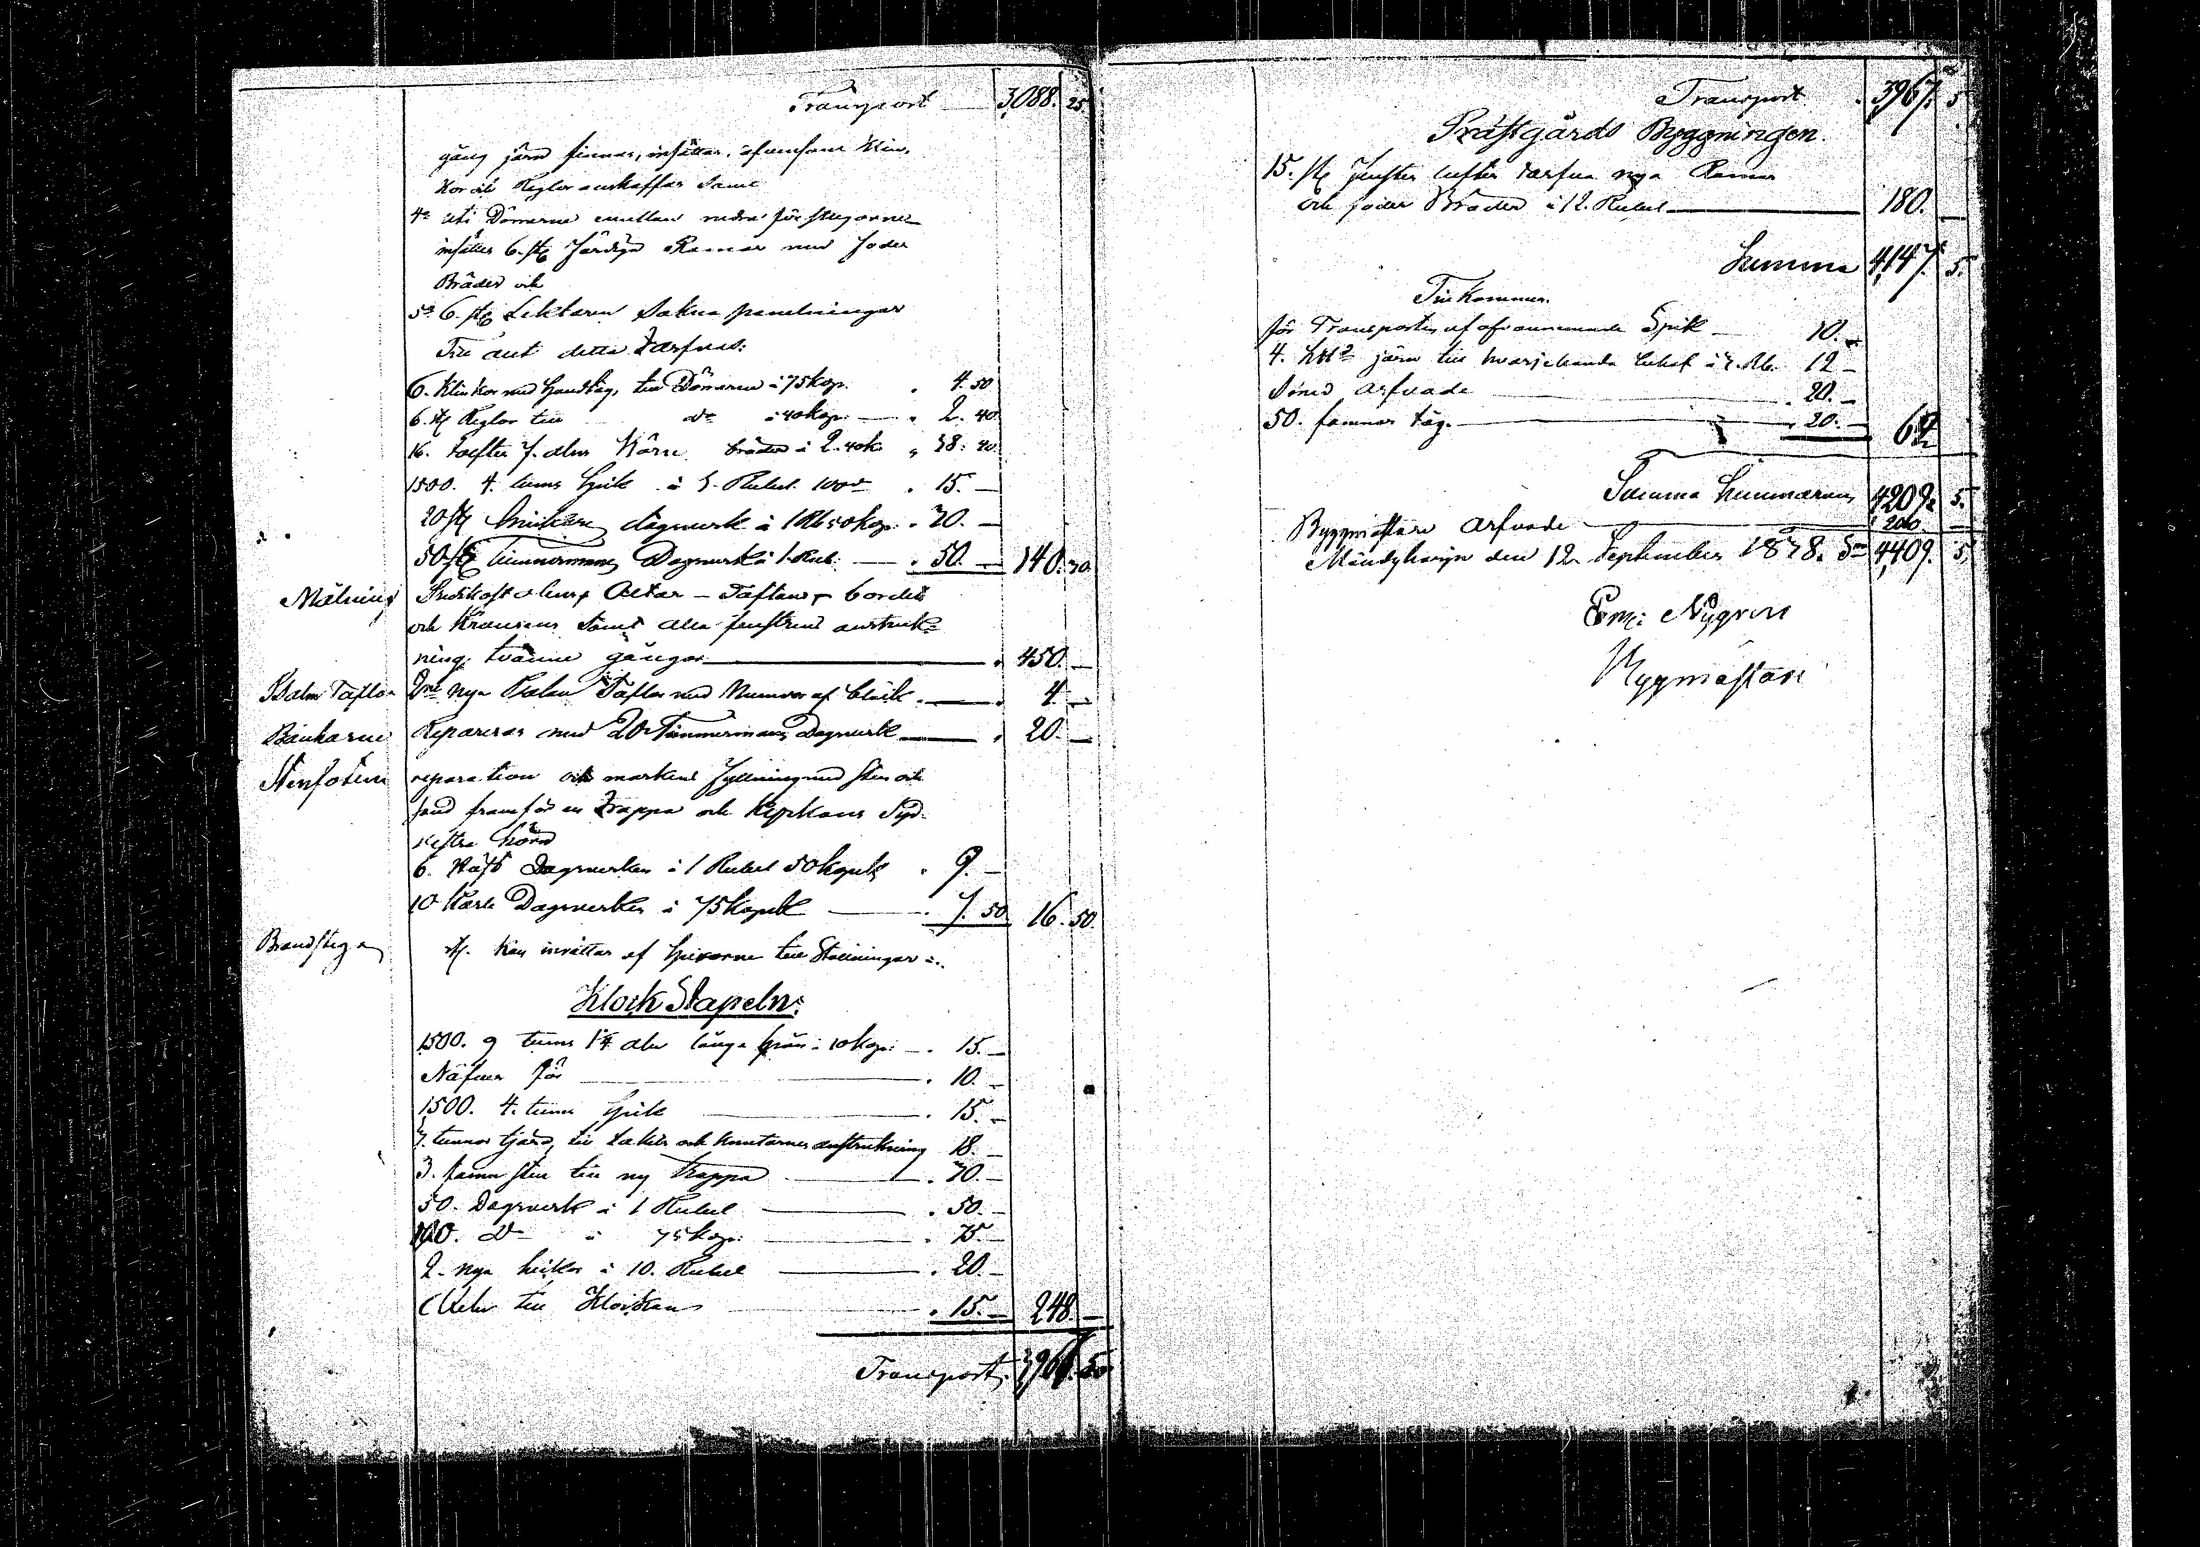 Transport 3,088. 25
gång järn finnas, insättas, äfvensom Klin-
kor och Reglor anskaffas samt
4o uti Dörrarne emellan nedra förstugorne
insättes 6. st. färdiga Ramar med foder
Bräder och
5o 6. st. Lektaren Sakna panelningar
Till allt detta Tarfvas:
6. Klinkor med handtag, till Dörrarne à 75 kop. 4. 50
6. st Reglor till do à 40 kop. 2. 40
16. tolfter 7. alns bräder à 2. 40 k. 38: 40
1500. 4. tums Spik à 15. —
20 st dagsverk à 1 Rb 50 kop. 30. —
50 st Timmermans Dagsverk à 1 Rub. 50. — 140. 30.
Målning Altar - Taflans bordets
och Kransens samt alla fenstrens anstruk-
ning, tvänne gånger 450. —
Psalm Taflor 2ne nya Psalm Taflor med Numror af bläck 4. —
Bänkarne Repareras med 20 Timmermans Dagsverk 20. —
Stenfoten reparation och markens fyllning med sten och
sand framför en Trappa och Kyrkans Syd-
vestra hörn
6. Dagsverken à 1 Rubel 50 kopek 9. —
10 Karls Dagsverken à 75 kopek 7. 50 16. 50.
Brandstegen Kan inrättas af Spirorne till Ställningar
Klock Stapeln:
1500. 9 tums 1¼ aln långa à 10 kop: 15. —
Näfver för 10. —
1,500. 4. tums Spik 15. —
3. tunnor tjära, till taket och knutarnes anstrukning 18. —
3. famn sten till ny Trappa 30. —
50. Dagsverk à 1 Rubel 50. —
100. do à 75 kop: 75. —
2. nya luckor à 10. Rubel 20. —
till Klockan 15. — 248. —
Transport. 3967. 5
Transport 3967. 5
Prästgårds Byggningen.
15. st. Fenster lufter tarfva nya Ramar
och foder Bräder à 12. Rubel 180. —
Summa 4,147. 5.
Till kommer.
för Transporten af ofvannämnde Spik 10. —
4. järn till hvarjehanda behof à 3. Rb. 12 —
Smed arfvode 20. —
50. famnar tåg. 20. — 62
Summa Summarum 4,209. 5.
Byggmästare Arfvode 200 —
Mäntyharju den 12. September 1878. Sa 4,409. 5.
Erik Nygren
Byggmästare